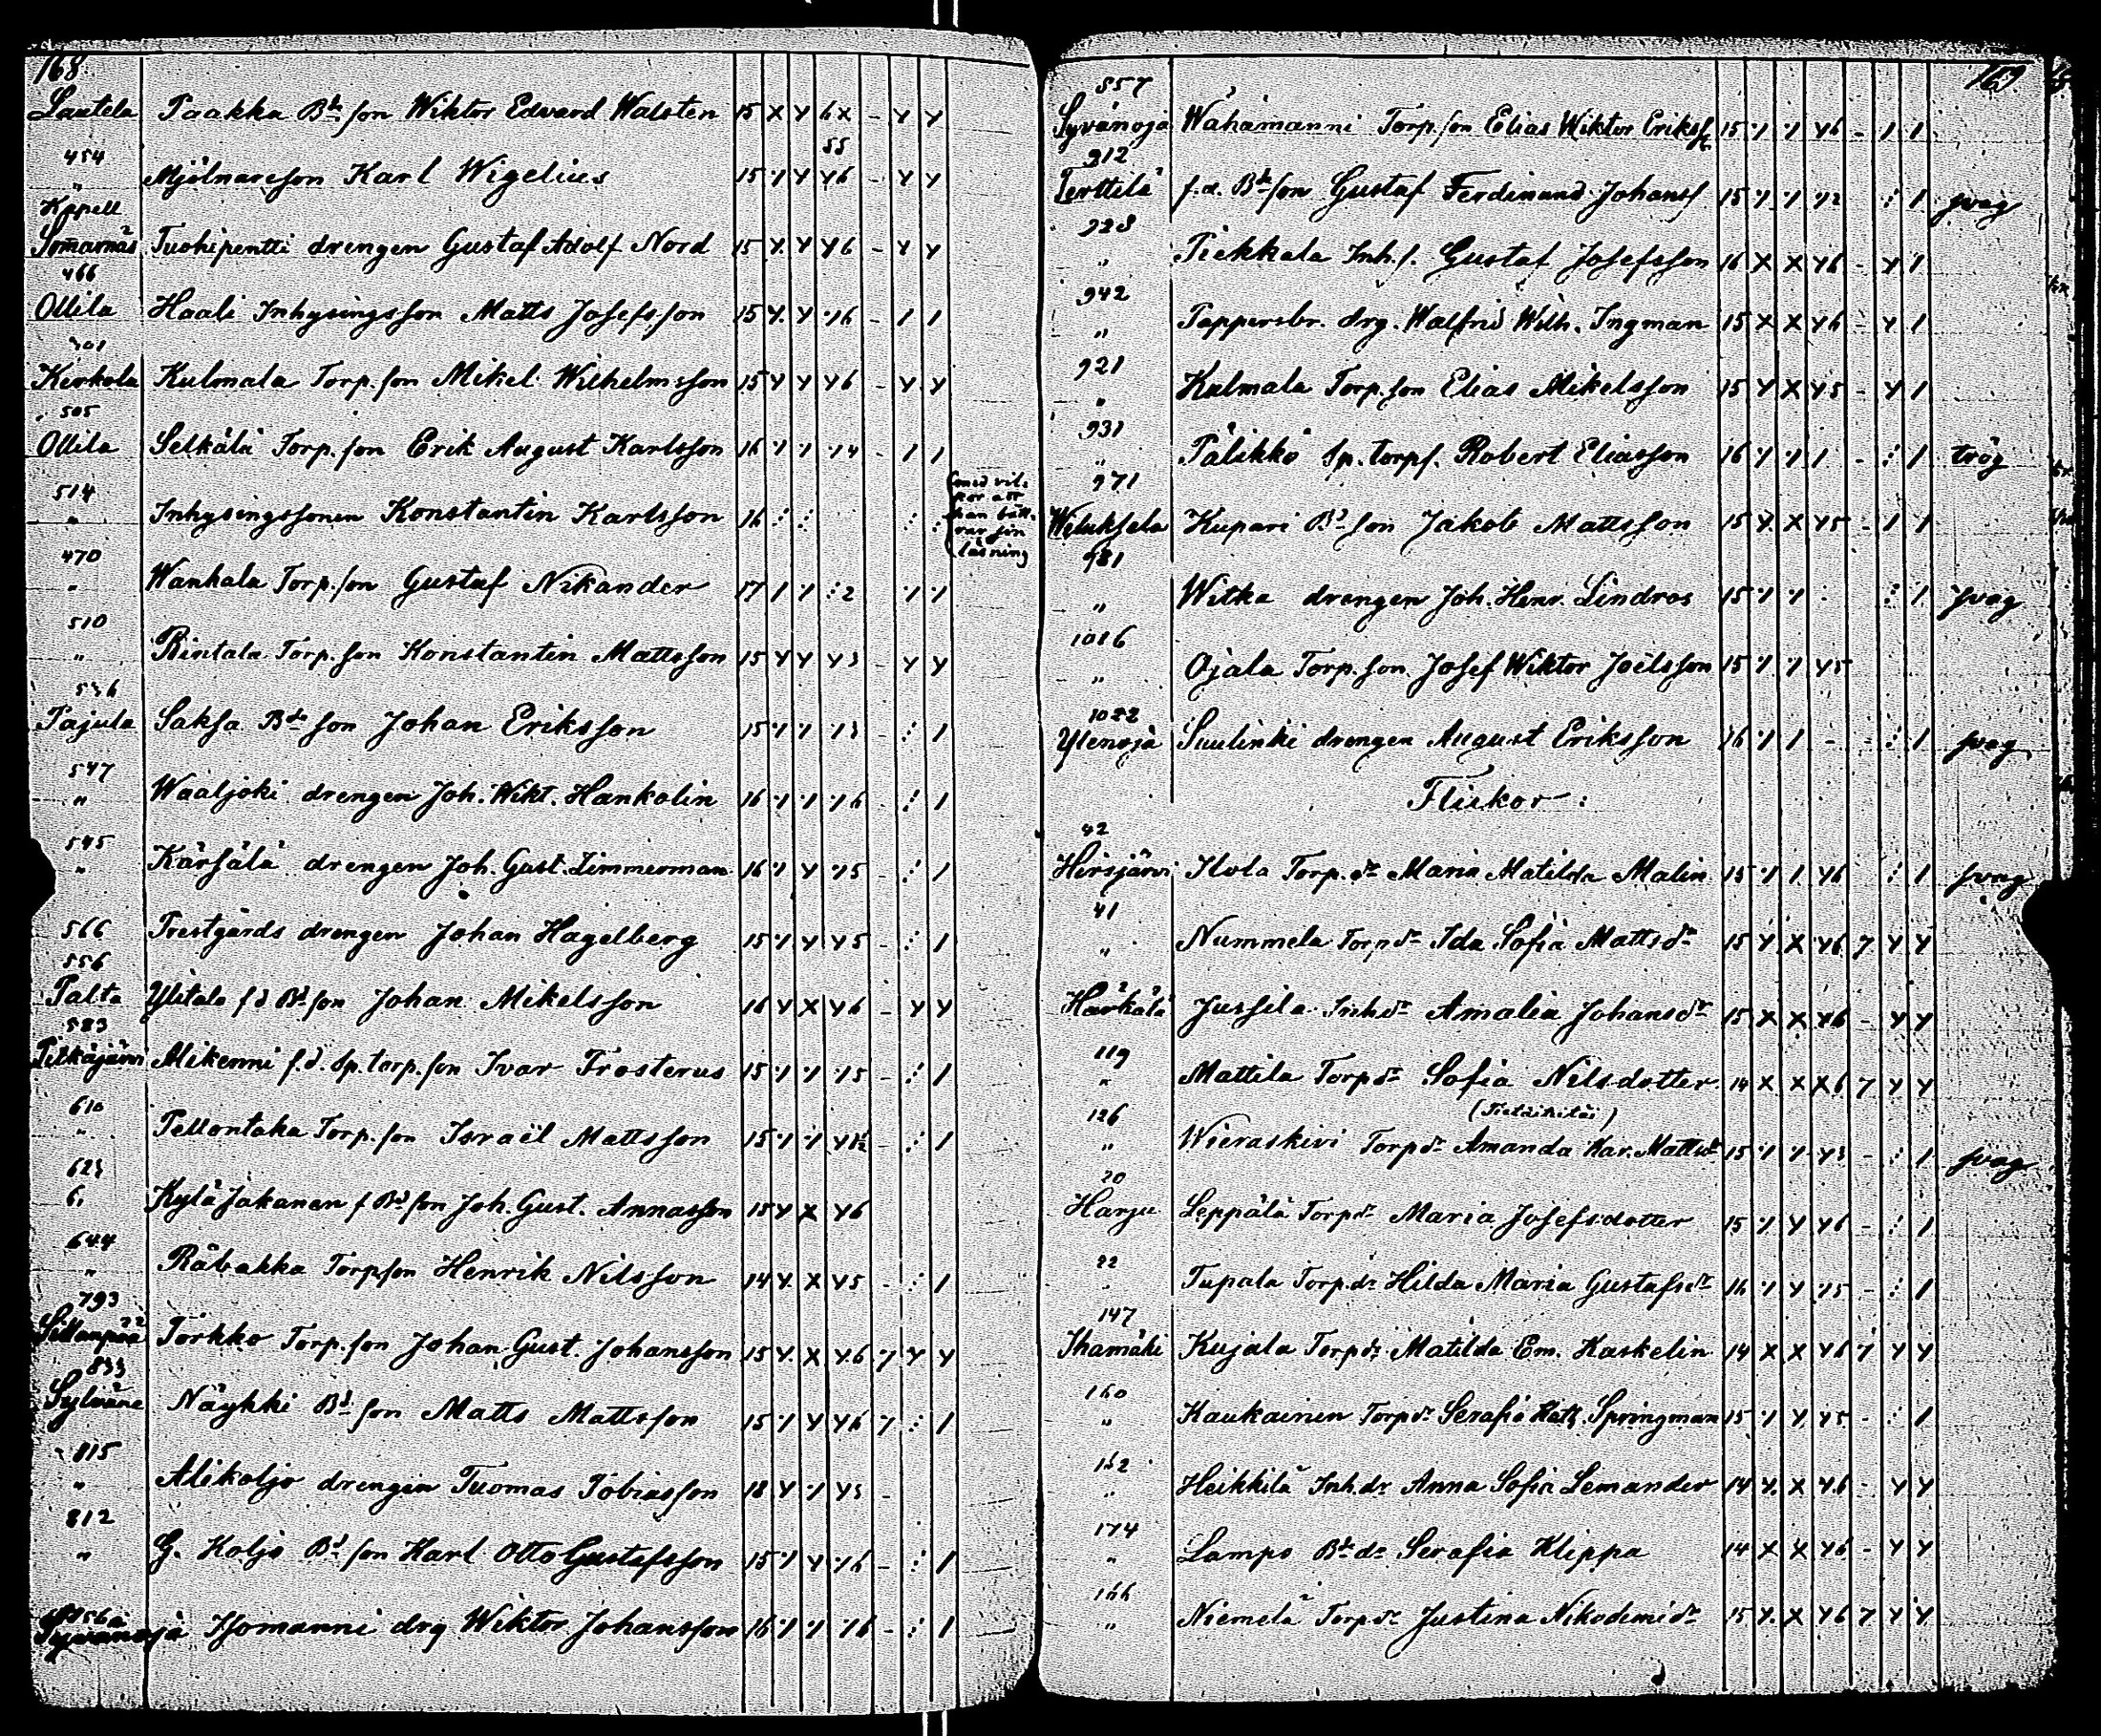 168
Lautela Paakka Bd son Wiktor Edvard Walsten 15 x y 6x - y y
55
454
" Mjölnaresson Karl Wigelius 15 y y y6 - y y
Kppell
Somarnäs Tuohipentti drengen Gustaf Adolf Nord 15 y y y6 - y y
466
Ollila Haali Inhysingsson Matts Josefsson 15 y y 16 - 1 1
Kerkola Kulmala Torp. son Mikel Wilhelmsson 15 y y y6 - y y
505
Ollila Selkälä Torp. son Erik August Karlsson 16 1 1 14 - 1 1
514
" Inhysingssonen Konstantin Karlsson 16
(med vil-
kor att
han bätt-
rar sin
läsning
470
" Wanhala Torp. son Gustaf Nikander 17 1 1 :2 1 1
510
" Rintala Torp. son Konstantin Mattsson 15 y y y3 - y y
536
Pajula Saksa Bd son Johan Eriksson 15 1 1 13 - : 1
547
" Waaljoki drengen Joh. Wikt. Hankolin 16 1 1 16 - : 1
545
" Kärsälä drengen Joh. Gust. Zimmerman 16 1 y 15 - : 1
566 Prestgårds drengen Johan Hagelberg 15 1 y y5 - : 1
556
Palta Ylitalo f d Bd son Johan Mikelsson 16 y x y6 - y y
583
Pitkäjärvi Mikenni f.d. Sp. torp. son Ivar Frosterus 15 1 1 15 - : 1
610
" Pellontaka Torp. son Israël Mattsson 15 1 1 - : 1
623
Kylä Jakanen f Bd son Joh. Gust. Annasson 15 y x y6
644
" Räbakka Torpson Henrik Nilsson 14 y x y5 - : 1
793
Sillanpää Torkko Torp. son Johan Gust. Johansson 15 y x y6 7 y y
833
Sylväne Näykki Bd son Matts Mattsson 15 1 y y6 7 : 1
815
" Alikoljo drengen Tuomas Tobiasson 18 y 1 y3 -
812
" G. Koljo Bd son Karl Otto Gustafsson 15 1 y 16 - : 1
856
Syvänoja Isomanni drg Wiktor Johansson 16 1 1 16 - : 1
169
857
Syvänoja Wähämanni Torp. son Elias Wiktor Erikss 15 1 1 y6 - 1 1
912
Terttilä f.d. Bd son Gustaf Ferdinand Johanss 15 1 1 12 : 1 svag
928
" Piekkala Inh. s. Gustaf Josefsson 16 x x y6 - y 1
942
" Peppersbr. drg. Walfrid Wilh. Ingman 15 x x y6 - y 1
921
" Kulmala Torp. son Elias Mikelsson 15 y x y5 - y 1
931
" Pälikkö Sp. torps. Robert Eliasson 16 1 1 1 - : 1 trög
971
Wiluksela Kupari Bd son Jakob Mattsson 15 y x y5 - 1 1
981
" Witka drengen Joh. Henr. Lindros 15 1 1 : : 1 svag
1016
" Ojala Torp. son Josef Wiktor Joëlsson 15 1 1 y5
1022
Ylenoja Suulinki drengen August Eriksson 16 1 1 - - : 1 svag
Flickor:
42
Hirsjärvi Ilola Torp. dr Maria Matilda Malin 15 1 1 y6 : 1 svag
41
" Nummela Torp dr Ida Sofia Mattsdr 15 y x y6 7 y y
Härkälä Jussila Inh dr Amalia Johansdr 15 x x x6 - y y
119
" Mattila Torp dr Sofia Nilsdotter 14 x x x6 7 y y
126
" Wieraskivi Torp dr Amanda Kar. Mattsdr 15 1 1 y3 - : 1 svag
20
Harju Leppälä Torp dr Maria Josefsdotter 15 1 y y6 - : 1
22
" Tupala Torp. dr Hilda Maria Gustafsdr 16 1 y 15 - : 1
147
Ihamäki Kujala Torp dr Matilda Em. Kaskelin 14 x x y6 7 y y
160
" Kaukainen Torp dr Serafia Springman 15 1 y y5 - : 1
162
" Heikkilä Inh. dr Anna Sofia Lemander 14 y x y6 - y y
174
" Lampo Bd dr Serafia Klippa 14 x x y6 - y y
166
" Niemelä Torp dr Justina Nikodemidr 15 y x y6 7 y y